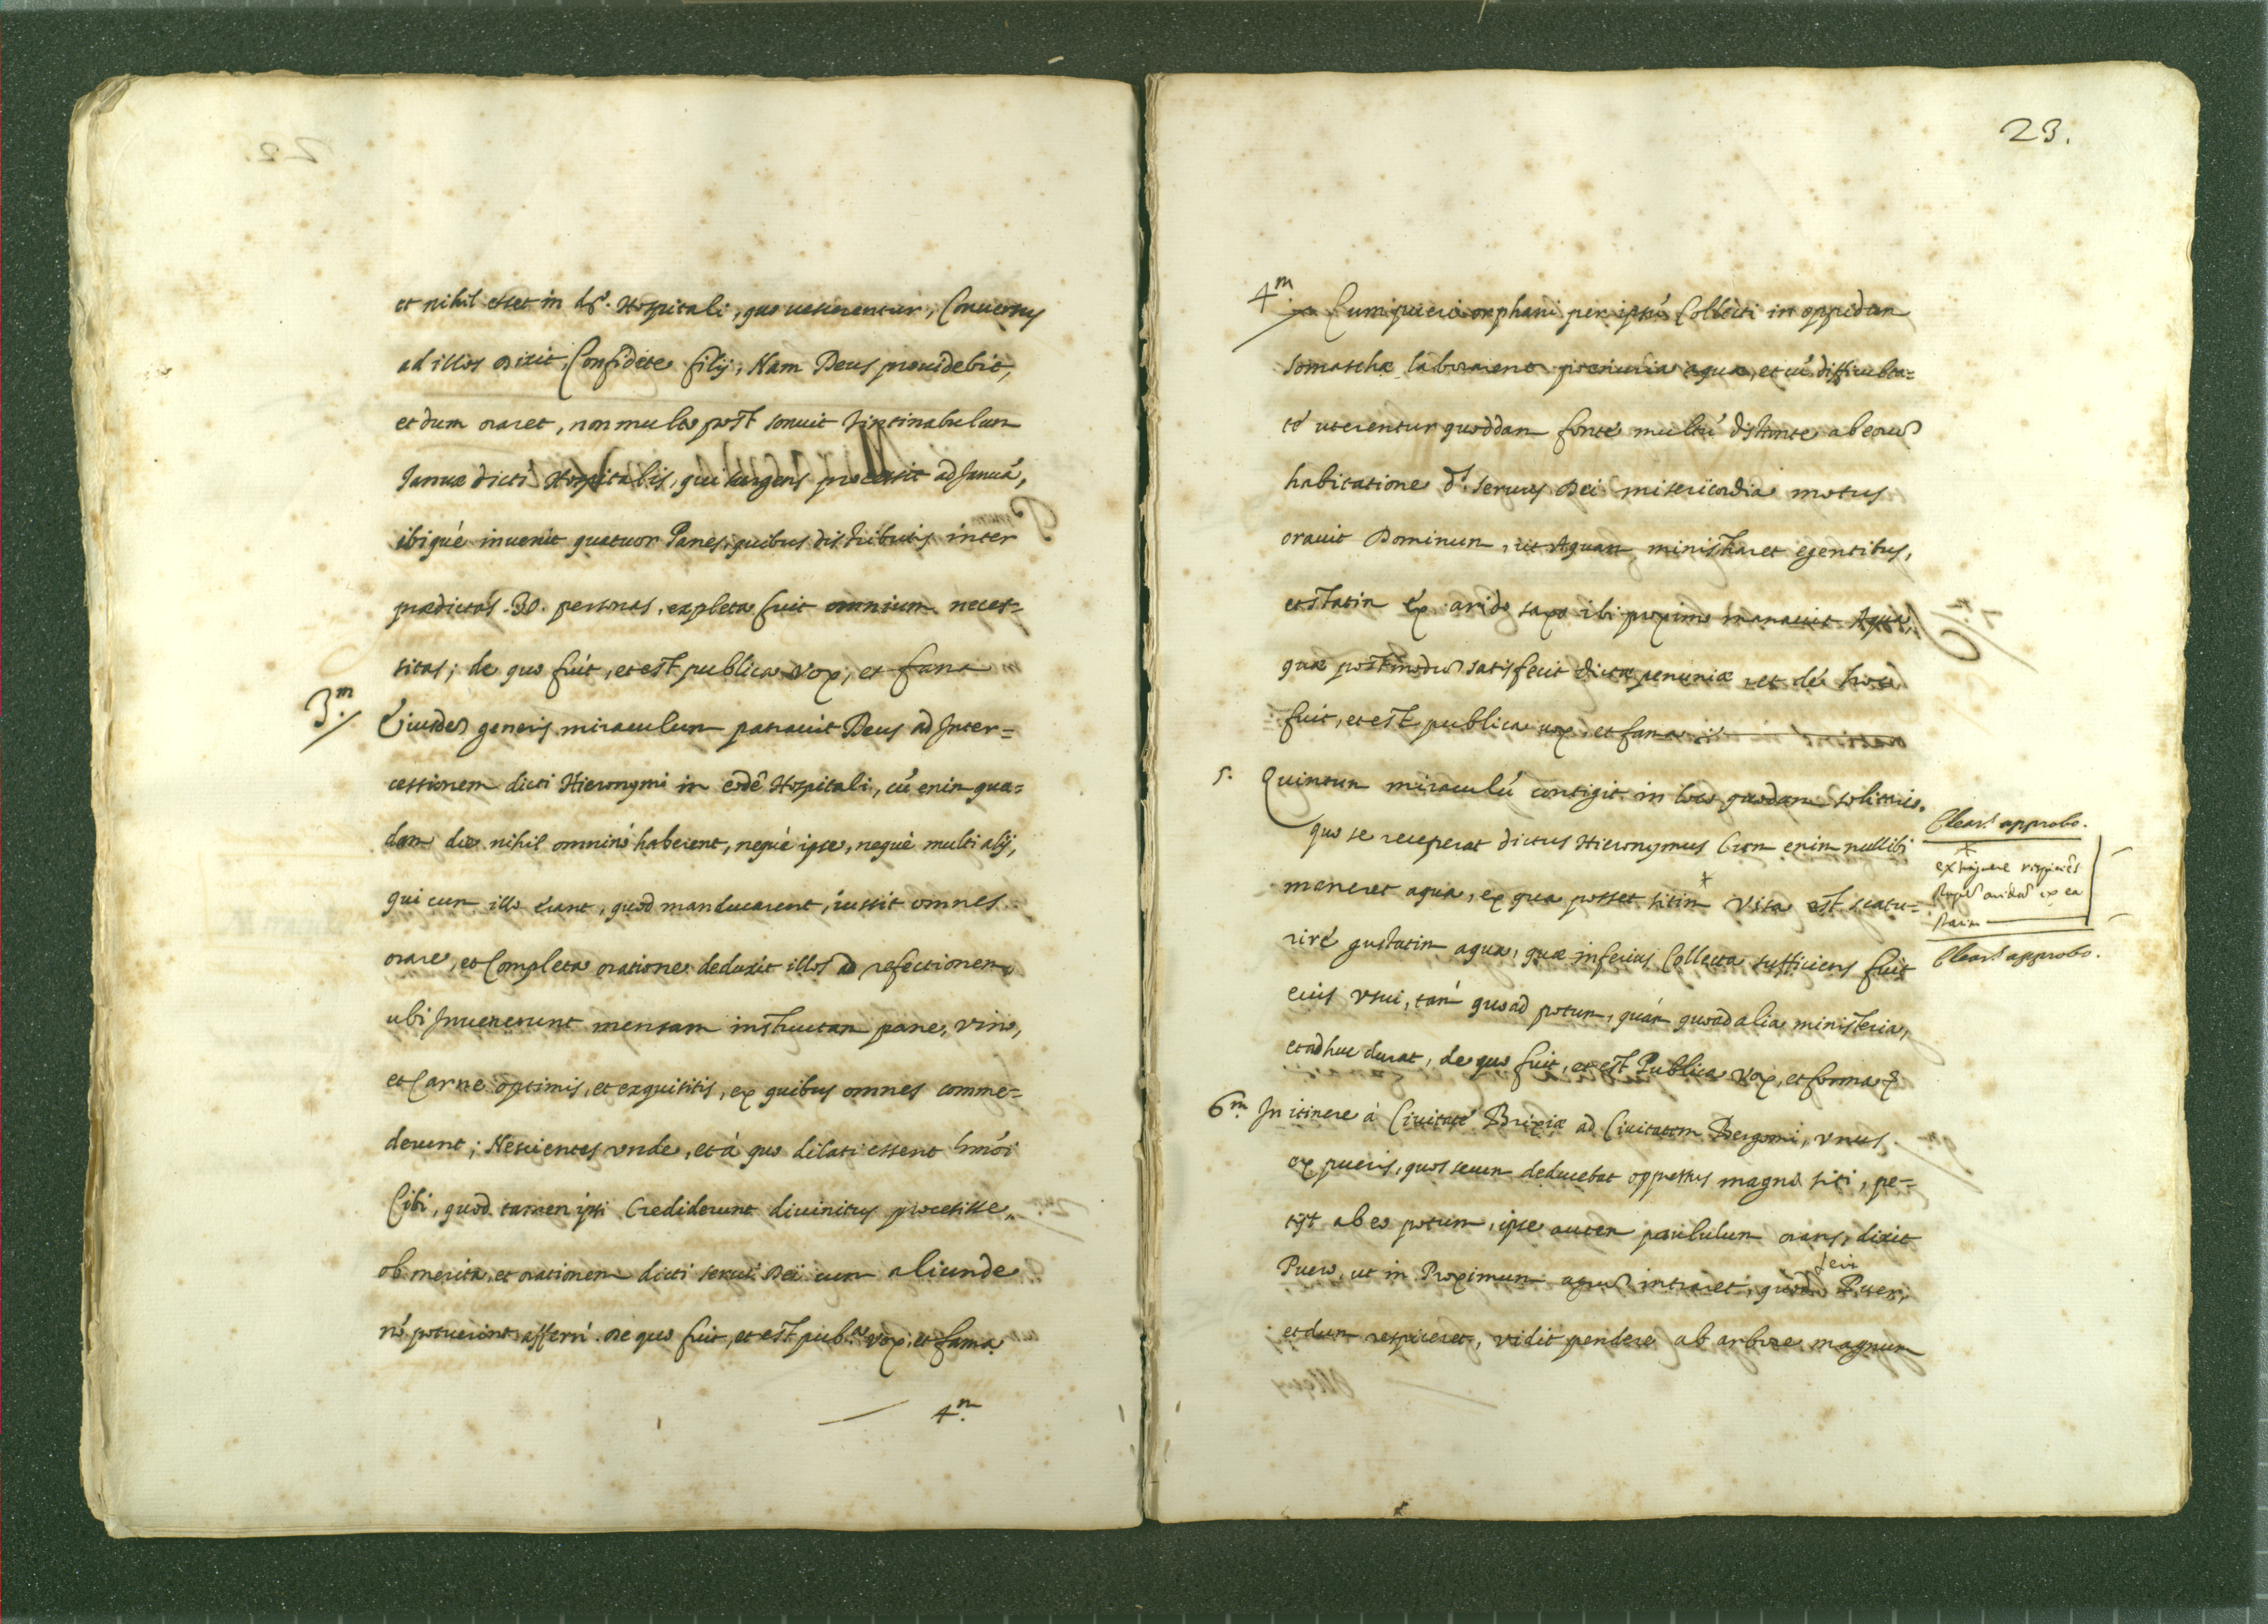 et nihil esset in d.º Hospitali, quo uescerentur, Conuersus
ad illos dixit, Confidete filij, Nam Deus prouidebit,
et dum oraret, non multo post sonuit tintinabulum
Januæ dicti Hospitalis, qui surgens processit ad Januã,
ibiquè inuenit quatuor Panes, quibus distributis inter
prædictas .30. personas, expleta fuit omnium neces=
sitas; de quo fuit, et est publica vox, et fama
3.m Eiusdẽ generis miraculum patrauit Deus ad Inter=
cessionem dicti Hieronymi in eodẽ Hospitali, cũ enim qua=
dam die nihil omninò haberent, nequè ipse, nequè multi alij,
qui cum illo erant, quod manducarent, iussit omnes
orare, et Completa oratione deduxit illos ad refectionem,
ubi Inuenerunt mensam instructam pane, vino,
et Carne optimis, et exquisitis, ex quibus omnes comme=
derunt; Nescientes vnde, et à quo dilati essent hmõi
Cibi, quod tamen ipsi Crediderunt diuinitus processisse,
ob merita, et orationem dicti serui Dei cum aliunde
nõ potuerint afferri. De quo fuit, et est pub.ca vox, et fama
4.m
23.
4.m Cum pueri orphani per ipsũ Collecti in oppidum
Somaschæ laborarent penuria aquæ, et cũ difficulta=
tẽ uterentur quoddam fonte multũ distante ab eorũ
habitatione d.º seruus Dei misericordia motus
orauit Dominum, ut Aquam ministraret egentibus,
et statim ex arido saxo ibi proximo manauit Aqua,
quæ postmodũ satisfecit dictæ penuriæ, et de hoc
fuit, et est publica uox, et fama
5. Quintum miraculũ contigit in loco quodam solitario,
quo se receperat dictus Hieronymus Cum enim nullibi
maneret aqua, ex qua posset sitim + visa est scatu=
rire guttatim aqua, quæ inferius Collecta sufficiens fuit
eius vsui, tam quoad potum, quàm quoad alia ministeria,
et adhuc durat, de quo fuit, et est Publica vox, et fama &
6.m In itinere à Ciuitate Brixiæ ad Ciuitatem Bergomi, vnus
ex pueris, quos secum deducebat oppressus magna siti, pe=
tijt ab eo potum, ipse autem paululum orans, dixit
Puero, ut in Proximum agrũ intraret, quod fecit Puer,
et dum respiceret, vidit pendere ab arbore magnum
approbo.
+
extinguere respiciẽs
aridã ex ea
approbo.